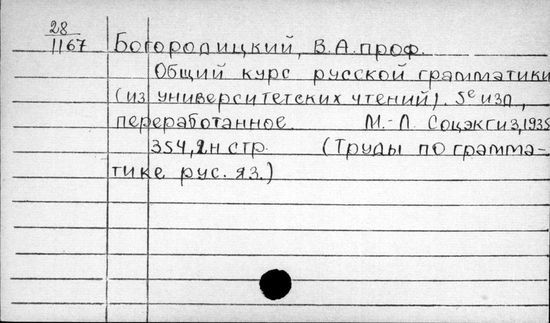 28
1167
Богородицкий, В.А. проф.
Общий курс русской грамматики
(из университетских чтений). 5е изд.,
переработанное. М.-Л. Соцэкгиз, 1935
354, 2н стр. (Труды по грамма-
тике рус. яз.)